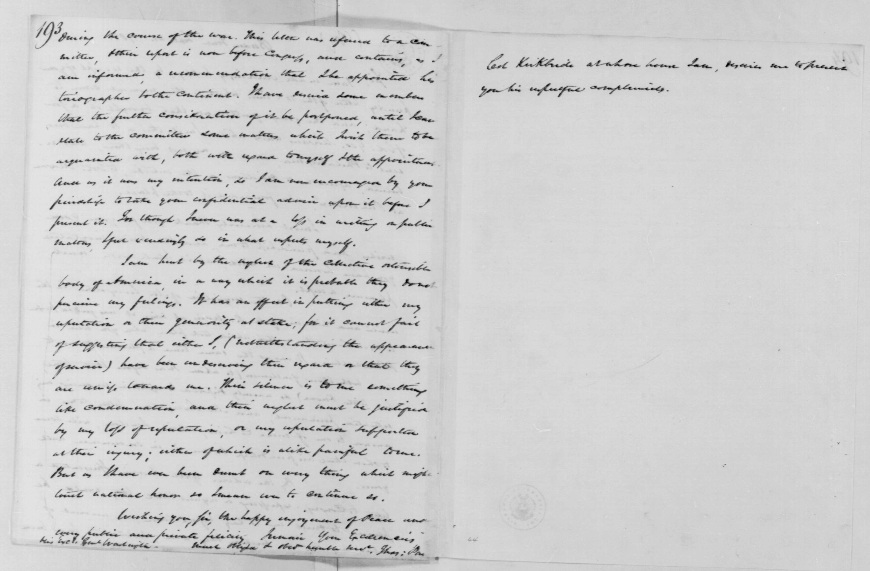 193
during the course of the war. This letter was referred to a com-
mittee, their report is now before Congress, and contains, as I
am informed, a recommendation that I be appointed his
toriographer to the continent. I have desired some members
that the further consideration of it be postponed, until I can
state to the committee some matters which I wish them to be
acquainted with, both with regard to myself & the appointment.
And as it was my intention, so I am now encouraged by your
friendship to take your confidential advice upon it before I
present it. For though I never was at a loss in writing on public
matters, I feel exceedingly so in what respects myself.
I am hurt by the neglect of the collective ostensible
body of America, in a way which it is probable they do not
perceive my feelings. It has an effect in putting either my
reputation or their generosity at stake; for it cannot fail
of suggesting that either I, (notwithstanding the appearance
of service) have been undeserving their regard or that they
are remiss towards me. Their silence is to me something
like condemnation, and their neglect must be justified
by my loss of reputation, or my reputation supported
at their injury; either of which is alike painful to me.
But as I have ever been dumb on every thing which might
touch national honor so I mean ever to continue so.
Wishing you, Sir, the happy enjoyment of Peace and
every public and private felicity I remain Your Excellency's
most obliged & obdt humble servt. Thos:
His Exl. Genl. Washington.
Col Kirkbride at whose house I am, desires me to present
you his respectful compliments.